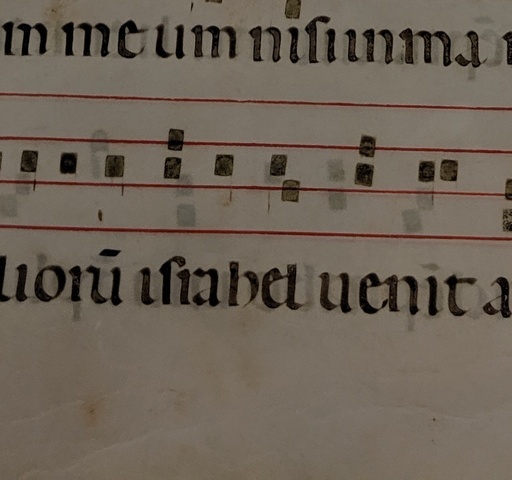 m meum nisi in ma
liorū israhel uenit a